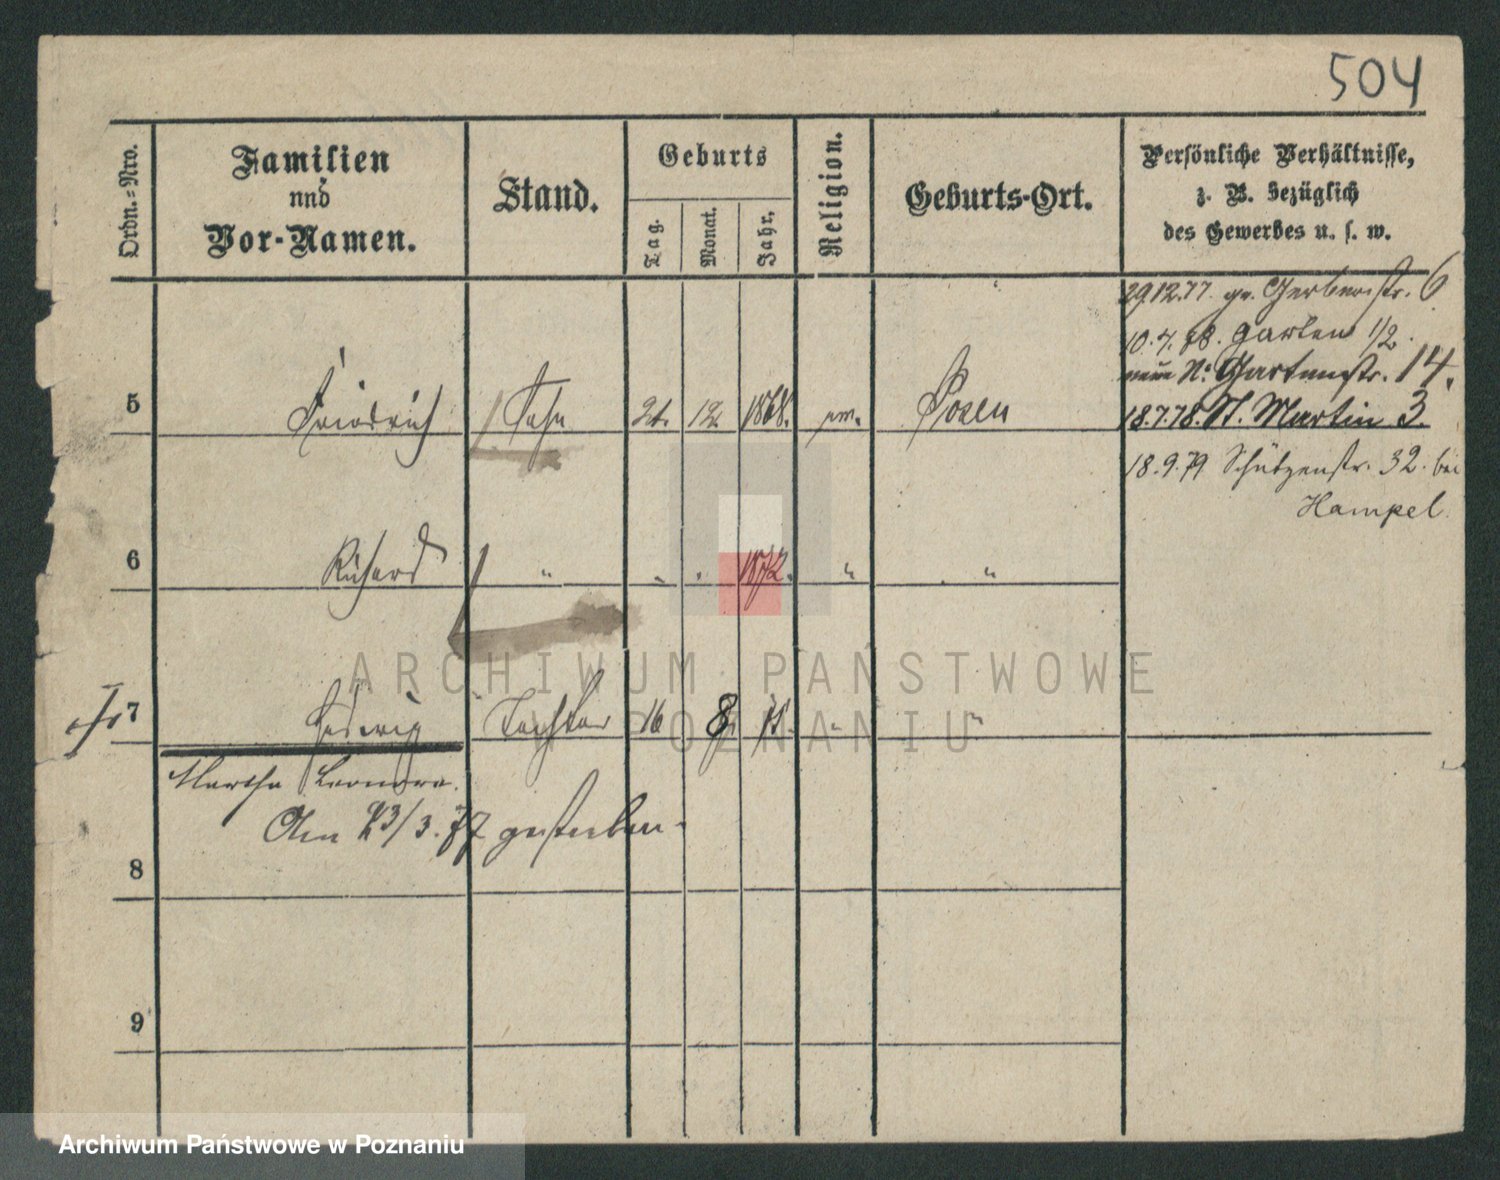 504
Ordn.-Nro.
Familien
und
Vor-Namen.
Stand.
Geburts
Tag.
Monat.
Jahr.
Religion.
Geburts-Ort.
Persönliche Verhältnisse,
z. B. bezüglich
des Gewerbes u. s. w.
29.12.77. Gerberstr. 6
10.4.78. Garten 1/2
neue No Gartenstr. 14.
5 Friedrich Sohn 21. 12. 1868. ev. Posen
18.7.78. St. Martin 3.
18.9.79 Schützenstr. 32. bei
Hampel.
6 Richard " " " 1872. " "
7 Hedwig Tochter 16 8. " "
Martha Leonore.
Am 23/3. 77 gestorben.
8
9
ARCHIWUM PAŃSTWOWE
W POZNANIU
Archiwum Państwowe w Poznaniu